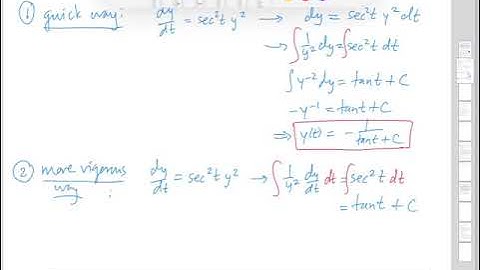 ① quick way: dy/dt = sec²t y² → dy = sec²t y² dt
→ ∫ 1/y² dy = ∫ sec²t dt
∫ y⁻² dy = tan t + C
-y⁻¹ = tan t + C
⇒ y(t) = - 1/(tan t + C)
② more vigorous way : dy/dt = sec²t y² → ∫ 1/y² dy/dt dt = ∫ sec²t dt
= tan t + C